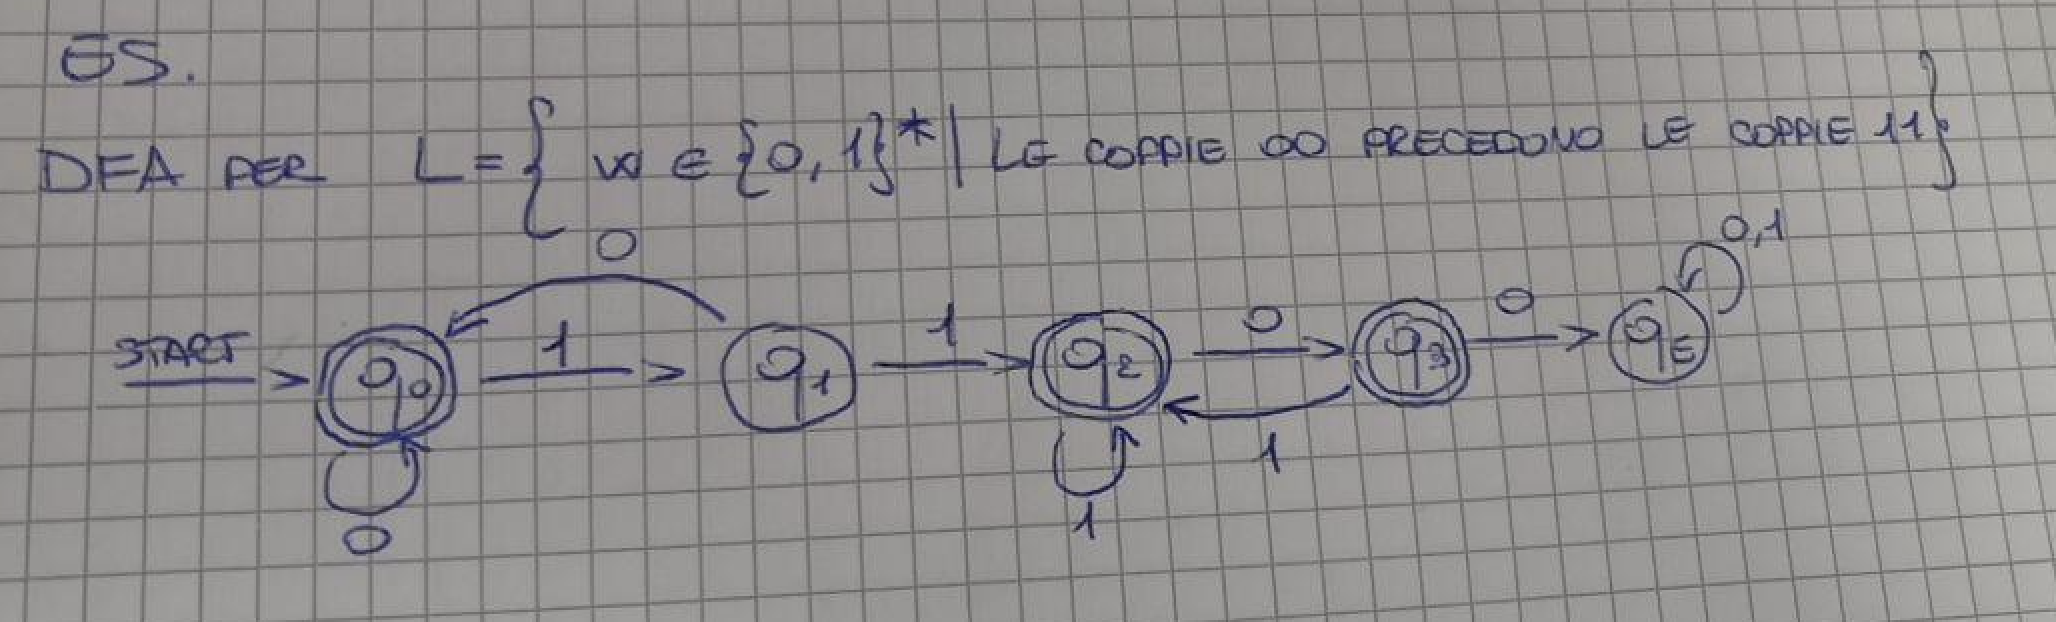 ES.
DFA PER L = { w ∈ {0,1}* | LE COPPIE 00 PRECEDONO LE COPPIE 11}
0 0,1
START q0 1 q1 1 q2 0 q3 0 qE
1
0 1